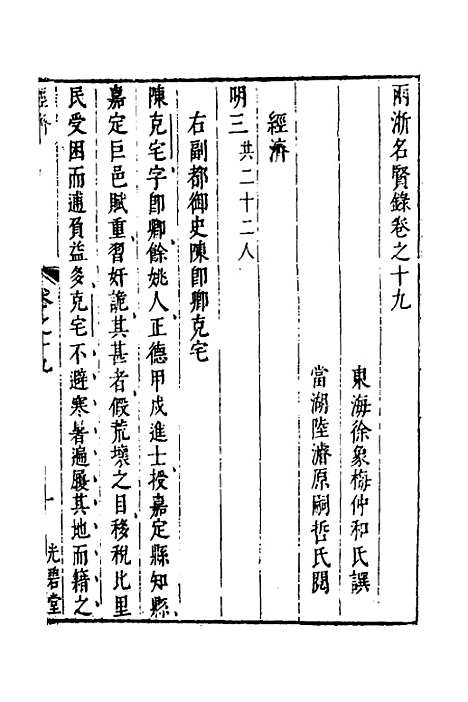 兩浙名賢錄卷之十九
東海徐象梅仲和氏譔
當湖陸濬原嗣哲氏閱
經濟
明三共二十二人
右副都御史陳卽卿克宅
陳克宅字卽卿餘姚人正德甲戌進士授嘉定縣知縣
嘉定巨邑賦重習奸詭其甚者假荒壞之目移稅比里
民受困而逋負益多克宅不避寒暑遍履其地而籍之
經濟
卷之十九
一
光碧堂